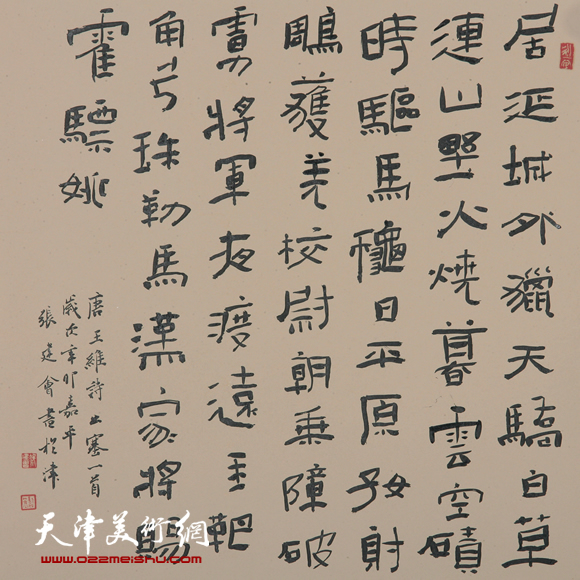 居延城外獵天驕白草
連山墅火燒暮雲空磧
時驅馬龝日平原好射
鵰護羌校尉朝乘障破
虜將軍夜渡遼玉靶
角弓珠勒馬漢家將賜
霍驃姚
唐王維詩出塞一首
歲次辛卯嘉平
張建會書於津
天津美術網
www.022meishu.com